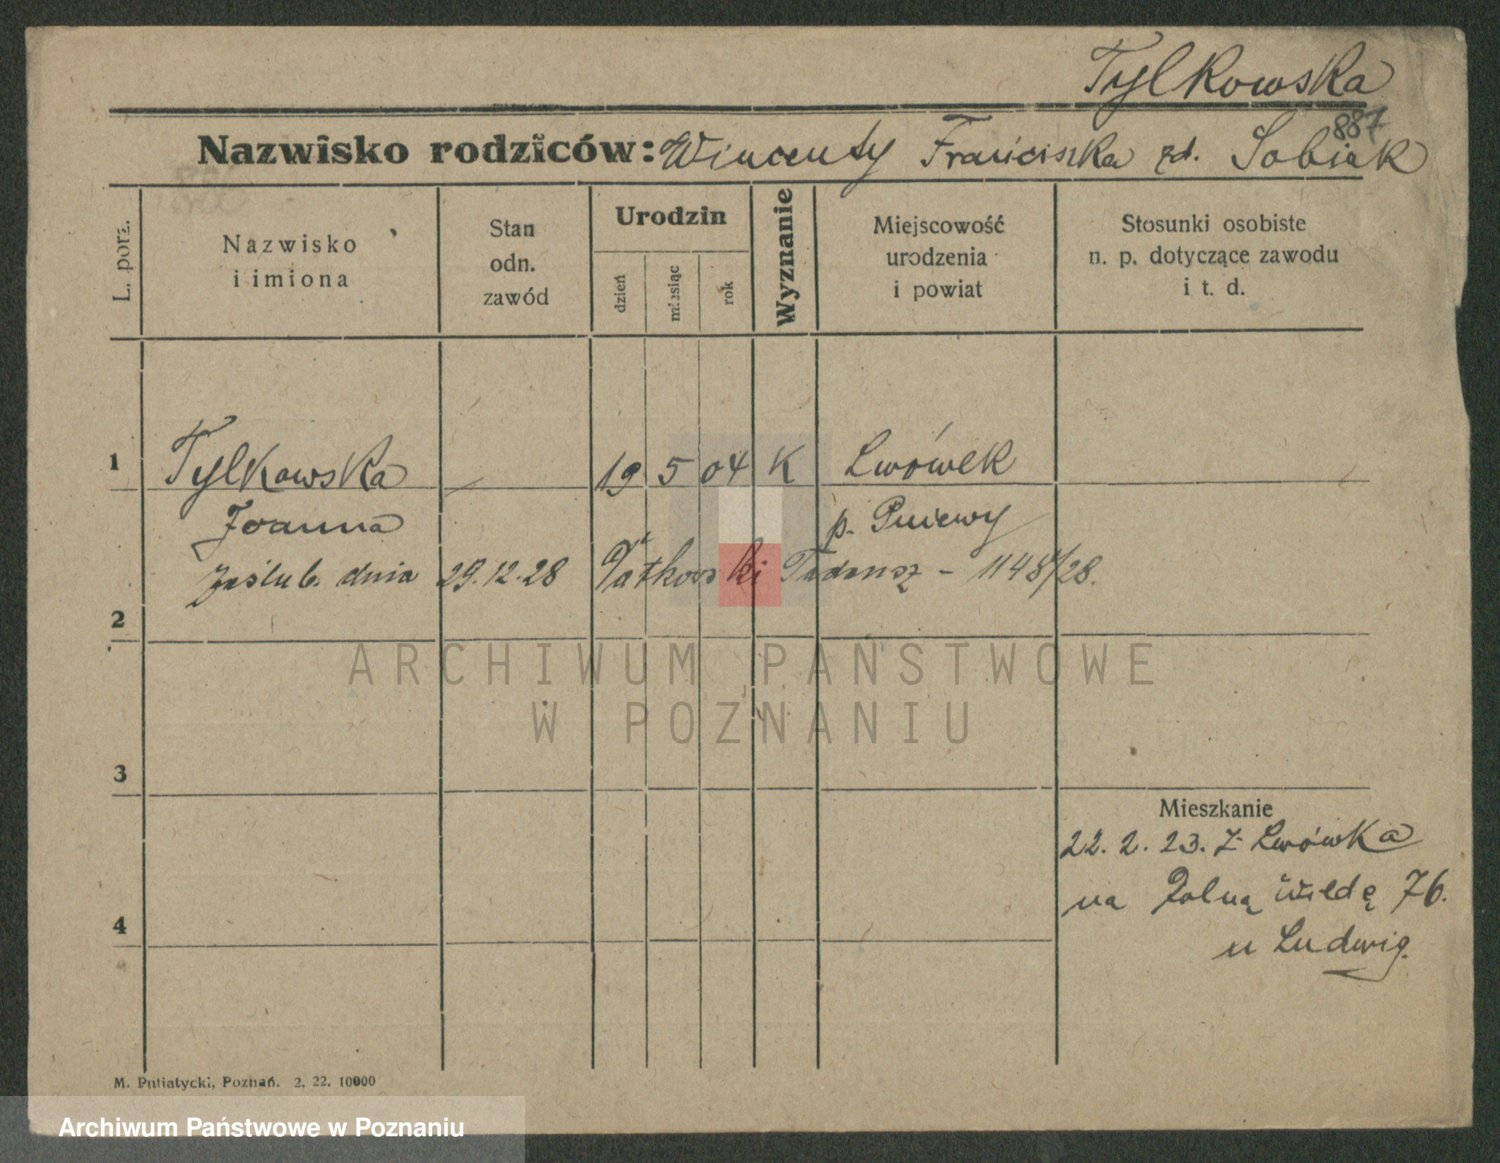 Tylkowska
887
Nazwisko rodziców: Wincenty Franciszka zd. Sobiak
L. porz.
Nazwisko
i imiona
Stan
odn.
zawód
Urodzin
dzień
miesiąc
rok
Wyznanie
Miejscowość
urodzenia
i powiat
Stosunki osobiste
n. p. dotyczące zawodu
i t. d.
1 Tylkowska — 19 5 04 K Lwówek
Joanna p. Pniewy
zaślub. dnia 29.12.28 Tadeusz - 1148/28.
2
ARCHIWUM PAŃSTWOWE
W POZNANIU
3
Mieszkanie
22. 2. 23. z Lwówka
na Polną Wildę 76.
4
u Ludwig.
M. Putiatycki, Poznań. 2, 22. 10000
Archiwum Państwowe w Poznaniu